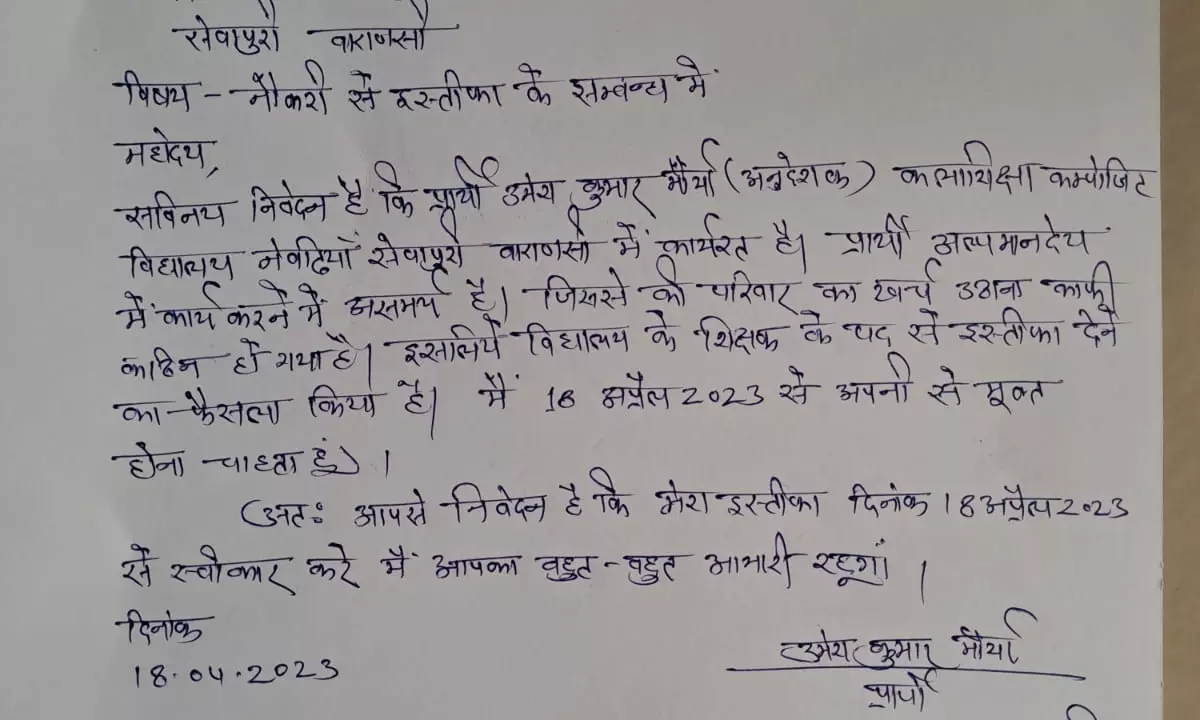 सेवापुरी वाराणसी
विषय - नौकरी से इस्तीफा के सम्बन्ध में
महोदय,
सविनय निवेदन है कि प्रार्थी उमेश कुमार मौर्या (अनुदेशक) कलाशिक्षा कम्पोजिट
विद्यालय नेवढ़ियाँ सेवापुरी वाराणसी में कार्यरत है। प्रार्थी अल्पमानदेय
में कार्य करने में असमर्थ है। जिससे की परिवार का खर्च उठाना काफी
कठिन हो गया है। इसलिये विद्यालय के शिक्षक के पद से इस्तीफा देने
का फैसला किया है। मैं 18 अप्रैल 2023 से अपनी से मूक्त
होना चाहता हूं।
अतः आपसे निवेदन है कि मेरा इस्तीफा दिनंक 18 अप्रैल 2023
से स्वीकार करे मैं आपका बहुत-बहुत आभारी रहूगां।
दिनांक
18.04.2023
उमेश कुमार मौर्या
प्रार्थी